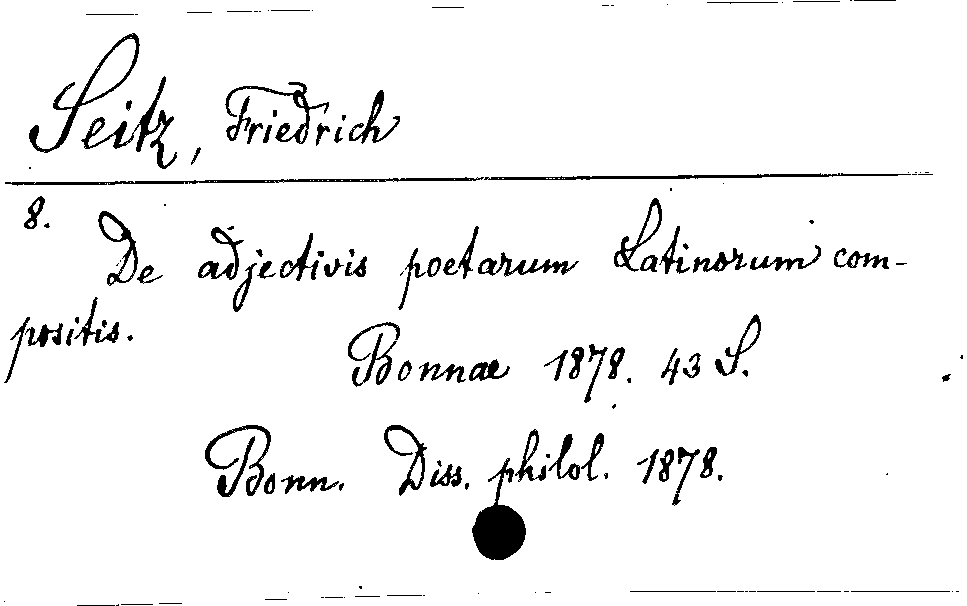 Seitz, Friedrich
8.
De adjectivis poetarum Latinorum com-
positis.
Bonnae 1878. 43 S.
Bonn. Diss. philol. 1878.